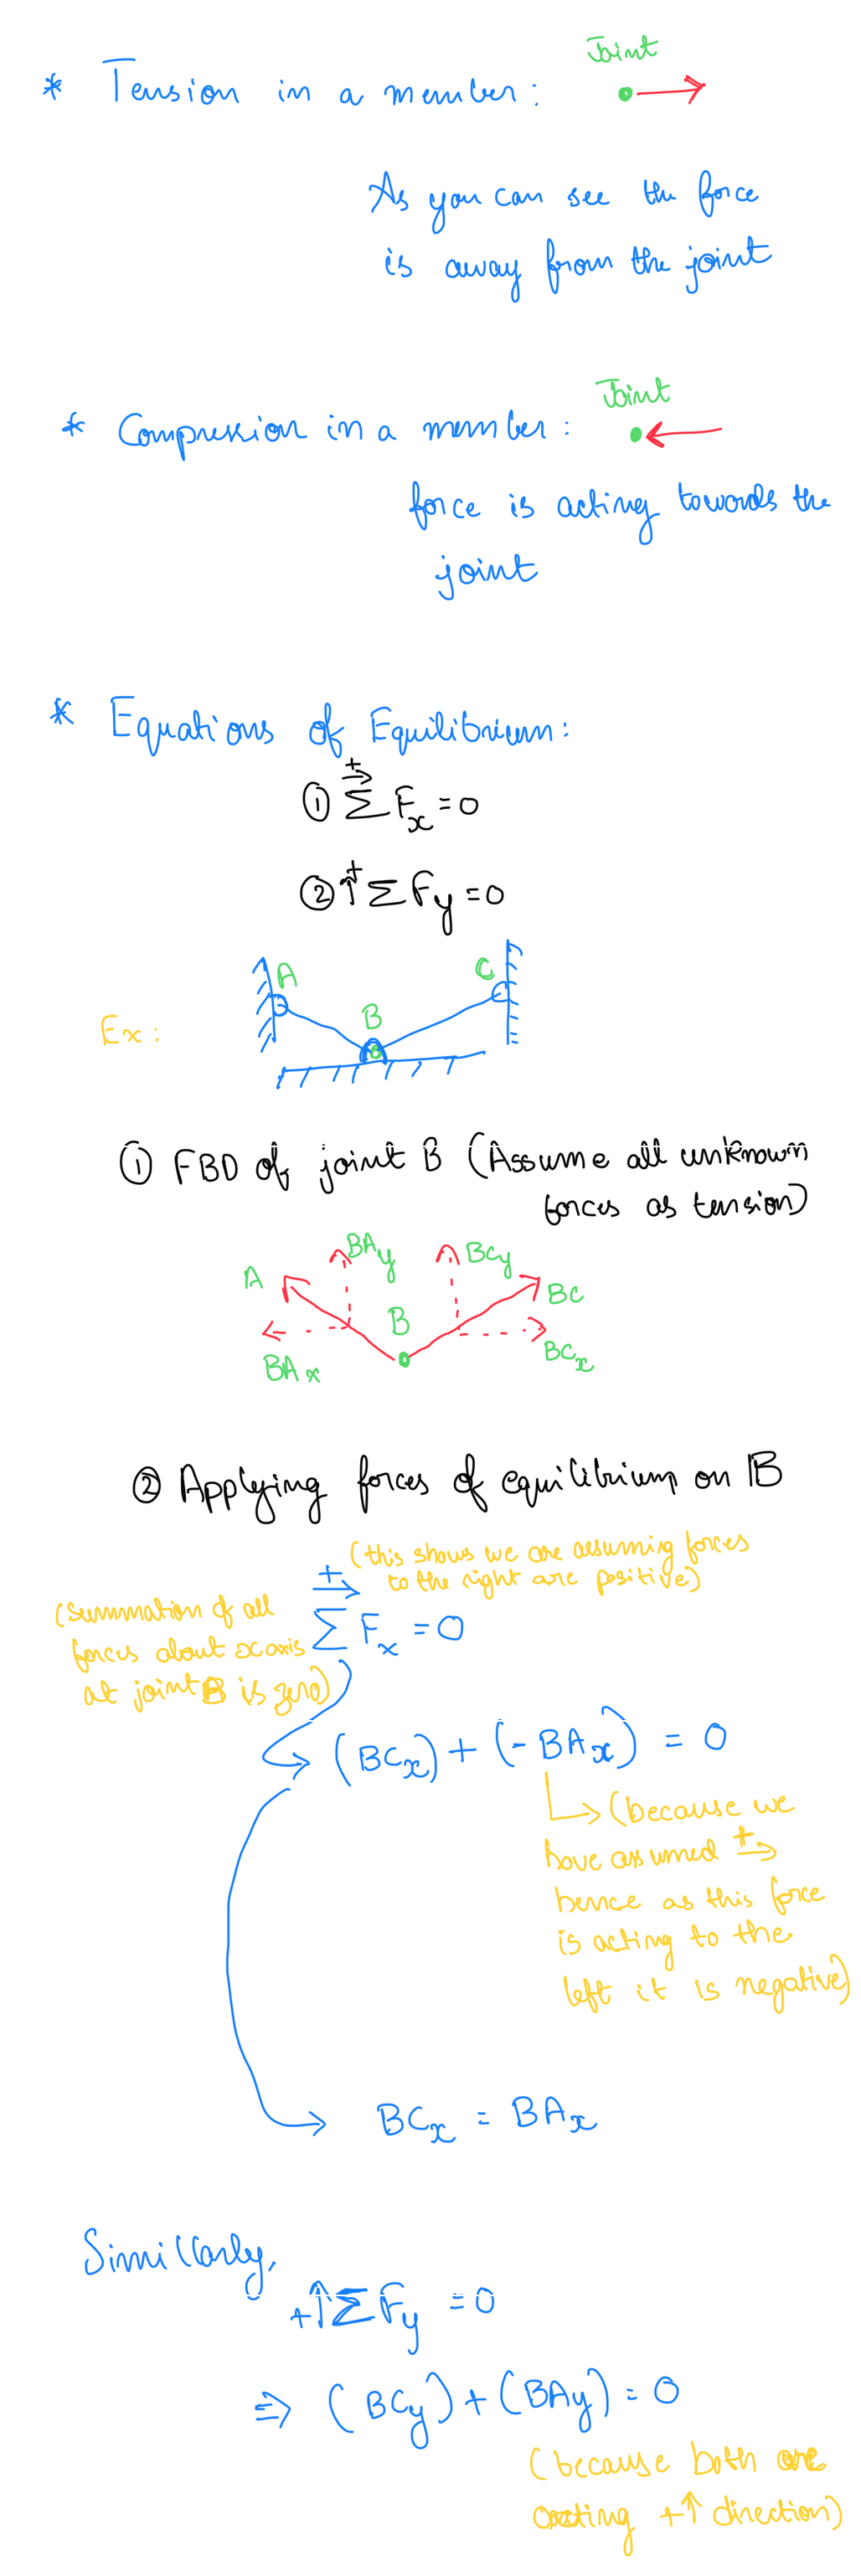 Joint
* Tension in a member:
As you can see the force
is away from the joint
Joint
* Compression in a member:
force is acting towards the
joint
* Equations of Equilibrium:
① +→ ΣFx = 0
② ↑+ ΣFy = 0
A
C
B
Ex:
① FBD of joint B (Assume all unknown
forces as tension)
BAy
BCy
A
BC
B
BAx
BCx
② Applying forces of equilibrium on B
(this shows we are assuming forces
to the right are positive)
(Summation of all
forces about x axis
at joint B is zero)
+→ ΣFx = 0
(BCx) + (-BAx) = 0
(because we
have assumed +→
hence as this force
is acting to the
left it is negative)
BCx = BAx
Similarly,
+↑ΣFy = 0
⇒ (BCy) + (BAy) = 0
(because both are
acting +↑ direction)